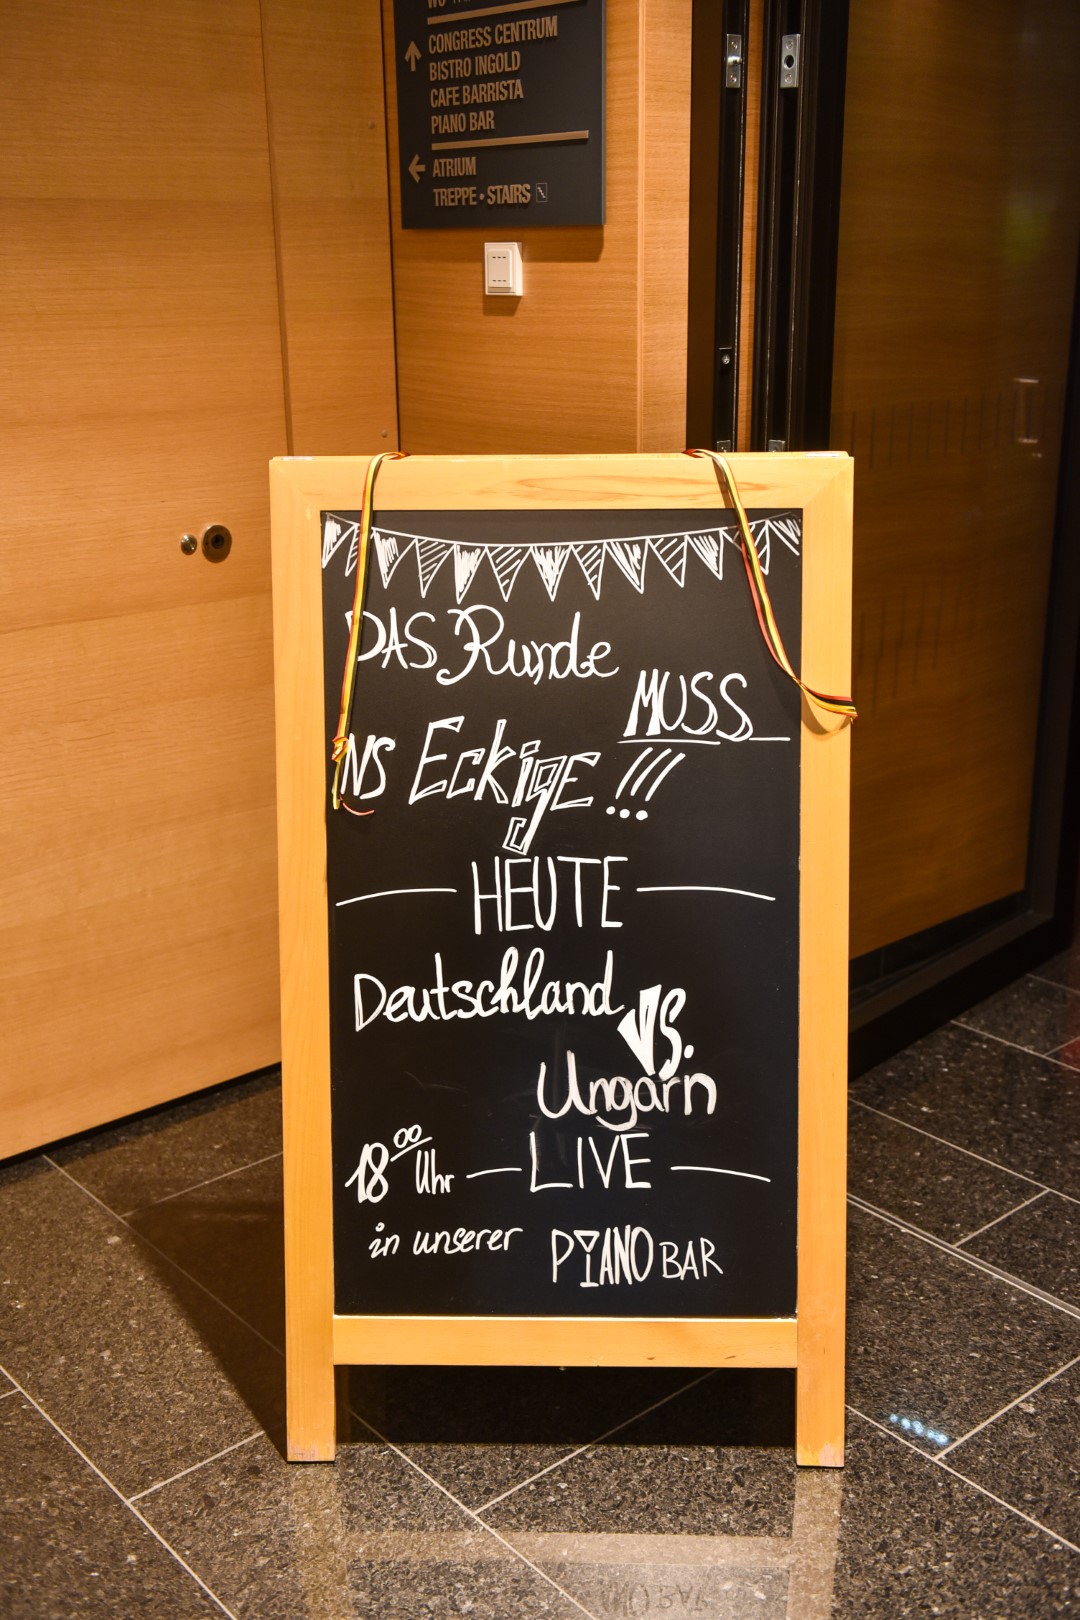 CONGRESS CENTRUM
BISTRO INGOLD
CAFE BARRISTA
PIANO BAR
ATRIUM
TREPPE • STAIRS
DAS Runde
MUSS
INS Eckige !!!
HEUTE
Deutschland
VS.
Ungarn
18⁰⁰ Uhr — LIVE —
in unserer PIANO BAR